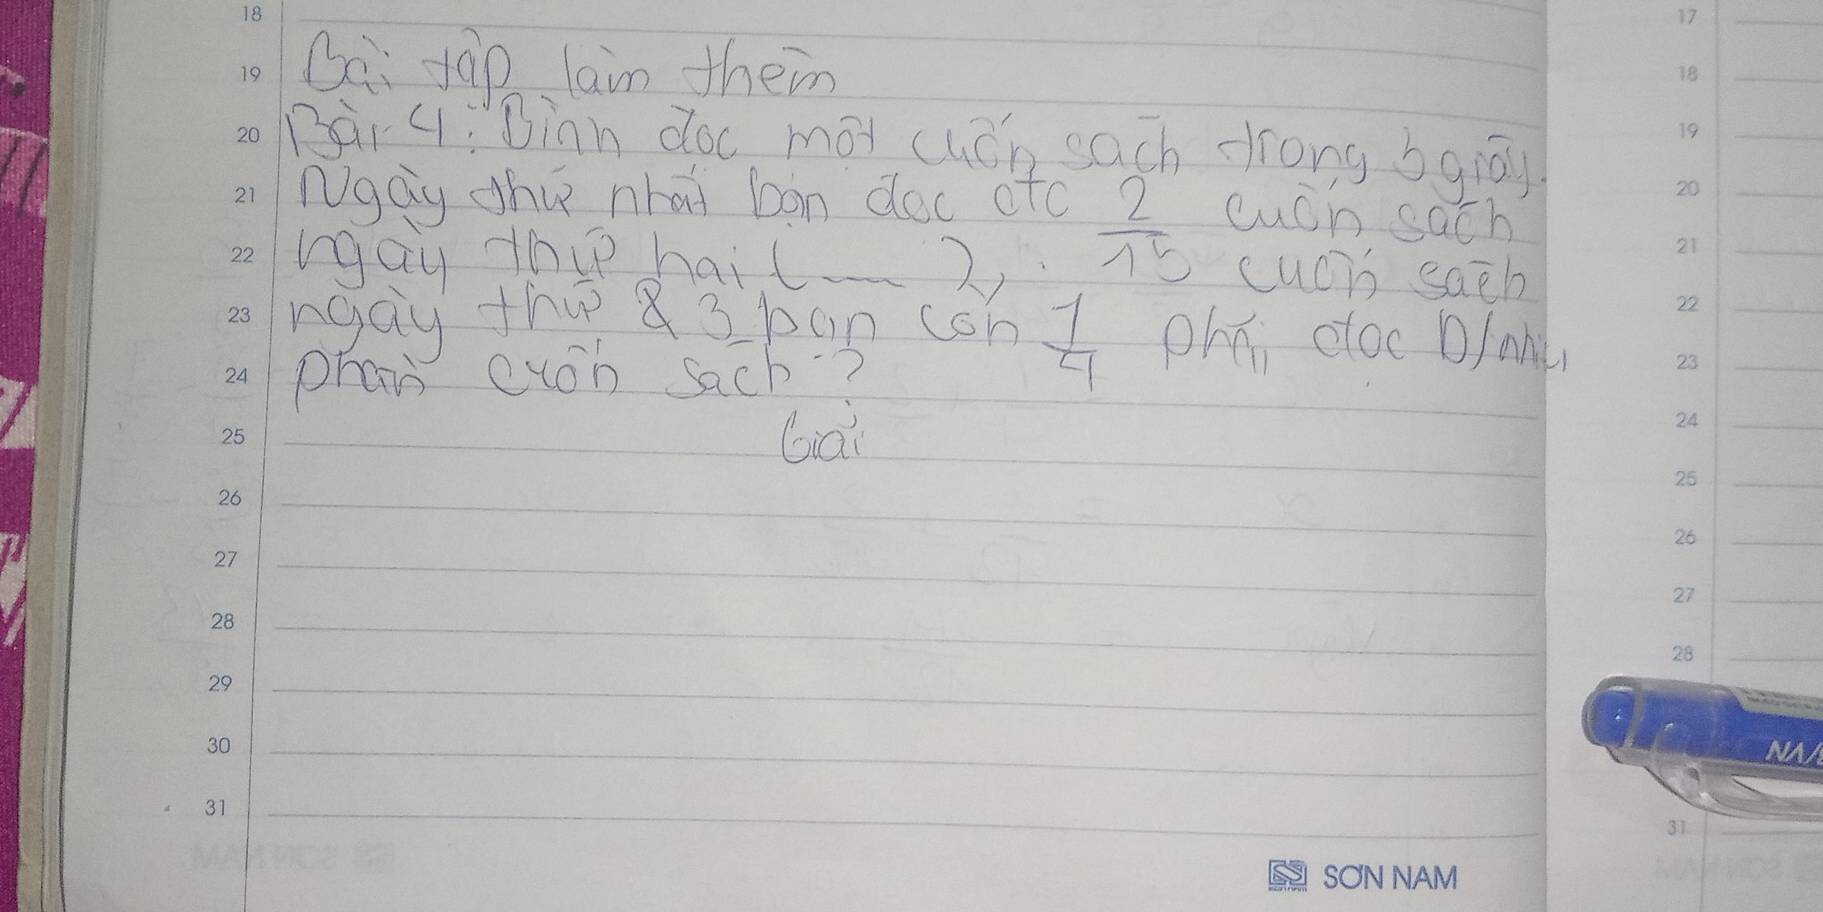 18
17
19 Bài tập làm thêm
18
20 Bài 4: Bình đọc một cuốn sách trong
19
21 Ngày thứ nhất bạn đọc đtc 2 cuốn sách
20
22 ngày thứ hai ( 15 cuốn sách
21
23 ngày thứ 3 bạn còn 1/4 phải đọc
22
24 phần cuốn sách?
23
25 Giải
24
26
25
27
26
28
27
29
28
30
31
31
NAM
SƠN NAM